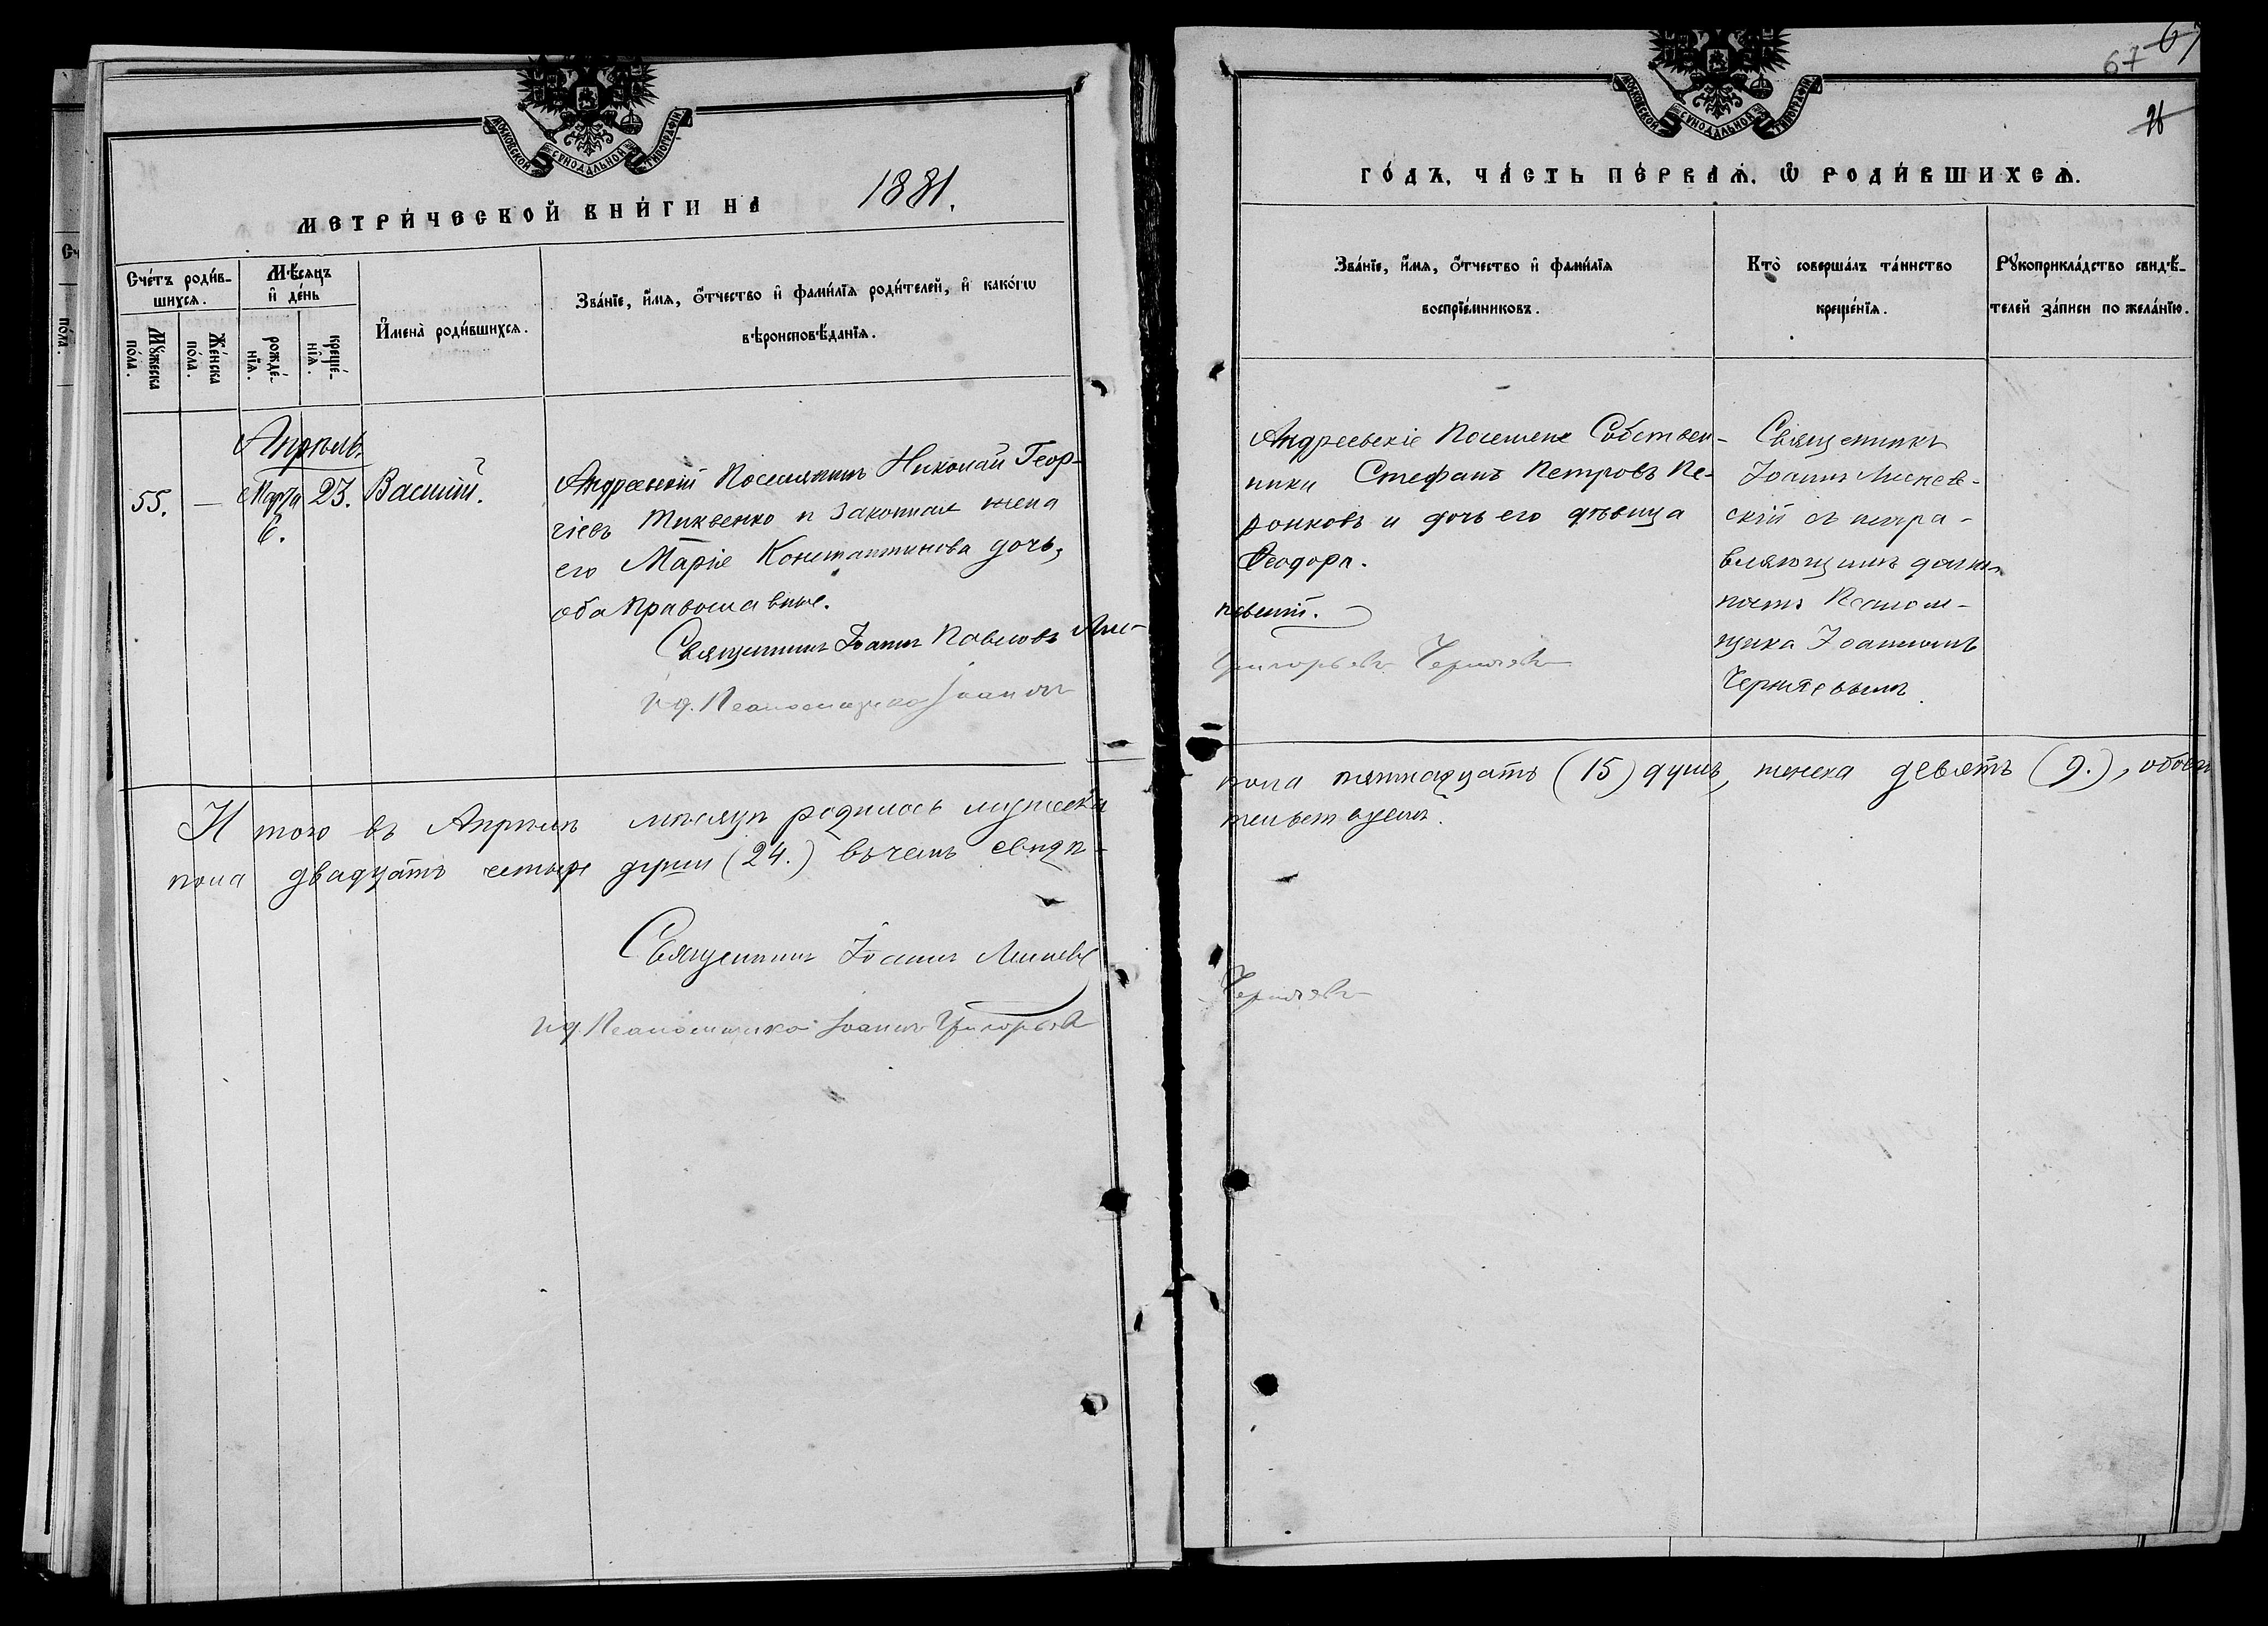 МОСКОВСКОЙ СѴНОДАЛЬНОЙ ТИПОГРАФІИ
МЕТРИ́ЧЕСКОЙ КНИ́ГИ НА 1881.
Сче́тъ роди́в-
шихся.
Мѣ́сяцъ
и де́нь
Мꙋ́жеска
по́ла.
Же́нска
по́ла.
рожде́-
нїя.
креще́-
нїя.
Имена̀ роди́вшихся.
Зва́нїе, и́мя, о́тчество и фами́лїя роди́телей, и како́гѡ
вѣроисповѣ́данїя.
Апрѣль
55.
—
Марта
6.
23.
Василій.
Андреевскій Поселянинъ Николай Геор-
гіевъ Тихенко и законная жена
его Марія Константинова дочь,
оба православные.
Священникъ Іоаннъ Павловъ Лис-
И.д. Псаломщика Іоаннъ
И того въ Апрѣлѣ мѣсяцѣ родилось мужеска
пола двадцать четыре души (24.) въ чемъ свидѣ-
Священникъ Іоаннъ Лисневс
И.д. Псаломщика Іоаннъ Григорьевъ
МОСКОВСКОЙ СѴНОДАЛЬНОЙ ТИПОГРАФІИ
67
26
ГО́ДЪ, ЧА́СТЬ ПЕ́РВАЯ, Ѡ РОДИ́ВШИХСЯ.
Зва́нїе, и́мя, о́тчество и фами́лїя
воспрїе́мниковъ.
Кто̀ соверша́лъ та́инство
креще́нїя.
Рꙋкоприкла́дство свидѣ́-
телей за́писи по жела́нїю.
Андреевскіе Поселяне Собствен-
ники Стефанъ Петровъ Пе-
ронковъ и дочь его дѣвица
Ѳеодора.
невскій.
Григорьевъ Чернявъ
Священникъ
Іоаннъ Лиснев-
скій съ испра-
вляющимъ долж-
ность Псалом-
щика Іоанномъ
Чернявымъ.
пола пятнадцать (15) душъ, женска девять (9.), обоего
тельствуемъ.
Чернявъ